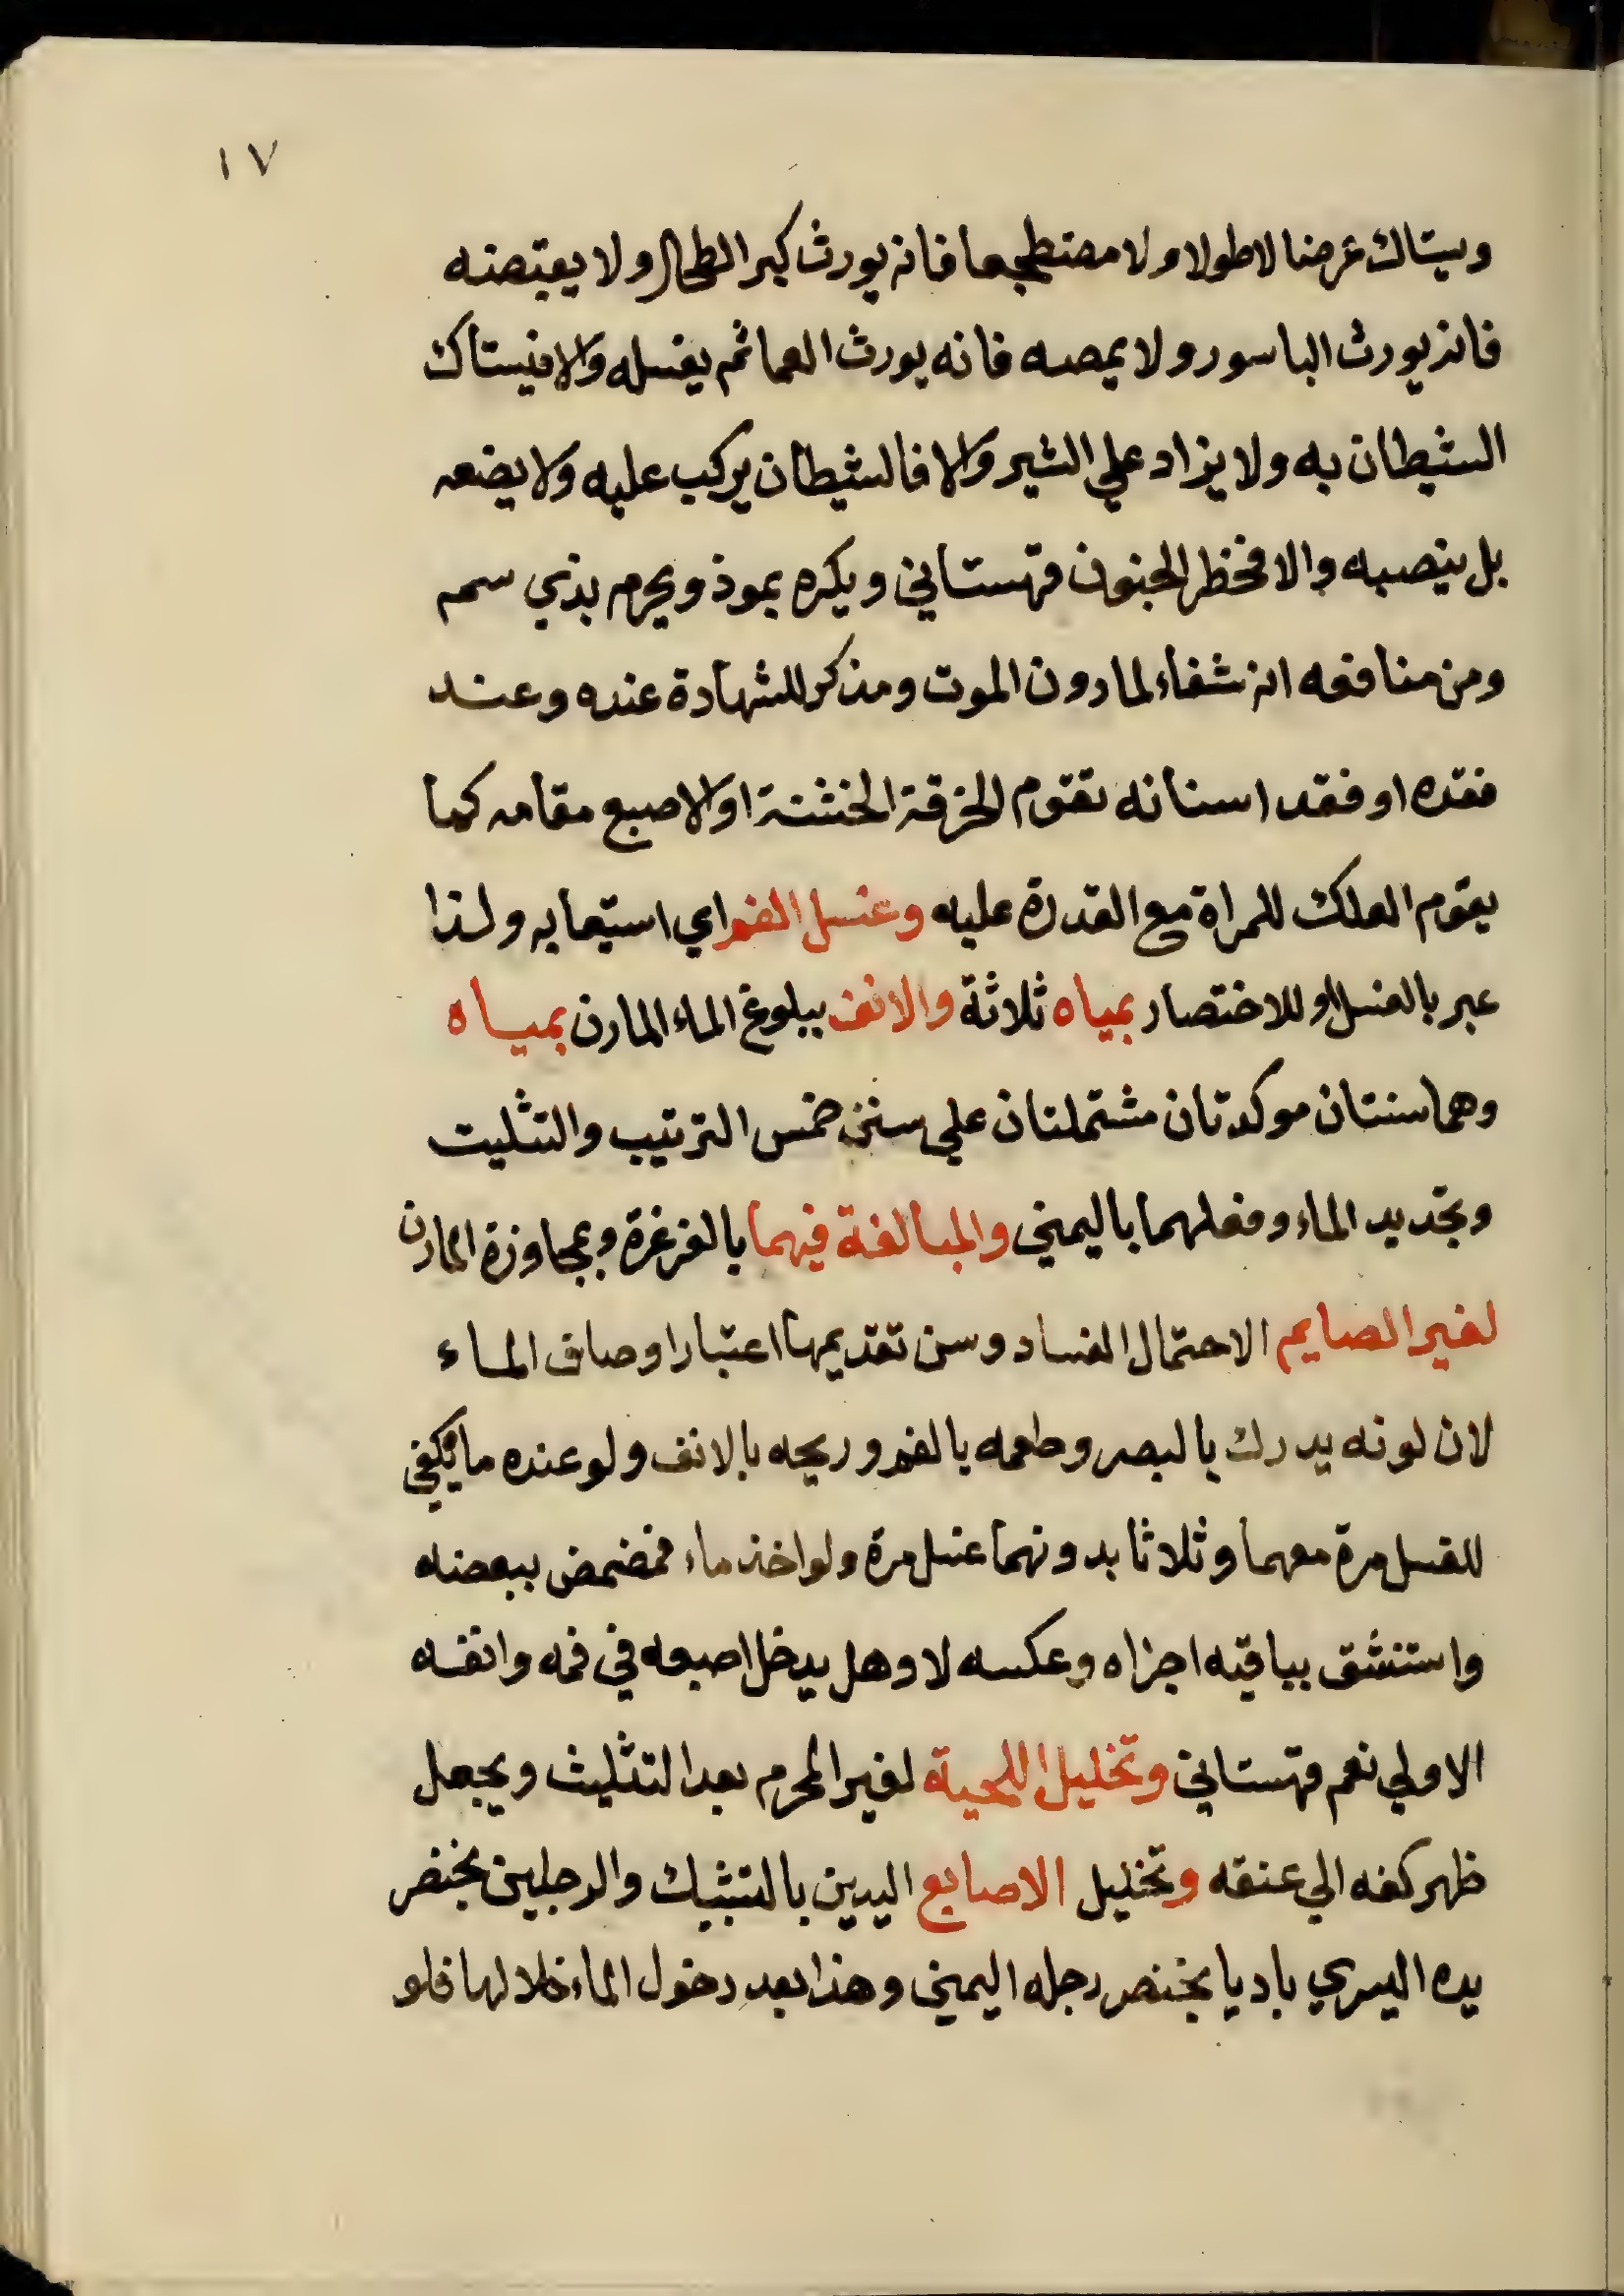 ١٧
ويستاك عرضا لا طولا ولا مضطجعا فانه يورث كبر الطحال ولا يقبضه
فانه يورث الباسور ولا يمصه فانه يورث العما ثم يغسله والا فيستاك
الشيطان به ولا يزاد علي الشبر والا فالشيطان يركب عليه ولا يضعه
بل ينصبه والا فخطر الجنون قهستاني ويكره بموذ ويحرم بذي سم
ومن منافعه انه شفاء لما دون الموت ومذكر للشهادة عنده وعند
فقده او فقد اسنانه تقوم الخرقة الخشنة او الاصبع مقامه كما
يقوم العلك للمراة مع القدرة عليه وغسل الفم اي استيعابه ولذا
عبر بالغسل او للاختصار بمياه ثلاثة والانف ببلوغ الماء المارن بمياه
وهما سنتان موكدتان مشتملتان علي سنن خمس الترتيب والتثليت
وتجديد الماء وفعلهما باليمني والمبالغة فيهما بالغرغرة وبمجاوزة المارن
لغير الصايم الاحتمال الفساد وسن تقديمهما اعتبار اوصاف الماء
لان لونه يدرك بالبصر وطعمه بالفم وريحه بالانف ولو عنده ما يكفي
للغسل مرة معهما وثلاثا بدونهما غسل مرة ولو اخذ ماء فمضمض ببعضه
واستنشق بباقيه اجزاه وعكسه لا وهل يدخل اصبعه في فمه وانفه
الاولي نعم قهستاني وتخليل اللحية لغير المحرم بعد التثليث ويجعل
ظهر كفه الي عنقه وتخليل الاصابع اليدين بالتشبيك والرجلين بخنصر
يده اليسري باديا بخنصر رجله اليمني وهذا بعد دخول الماء خلالها فلو